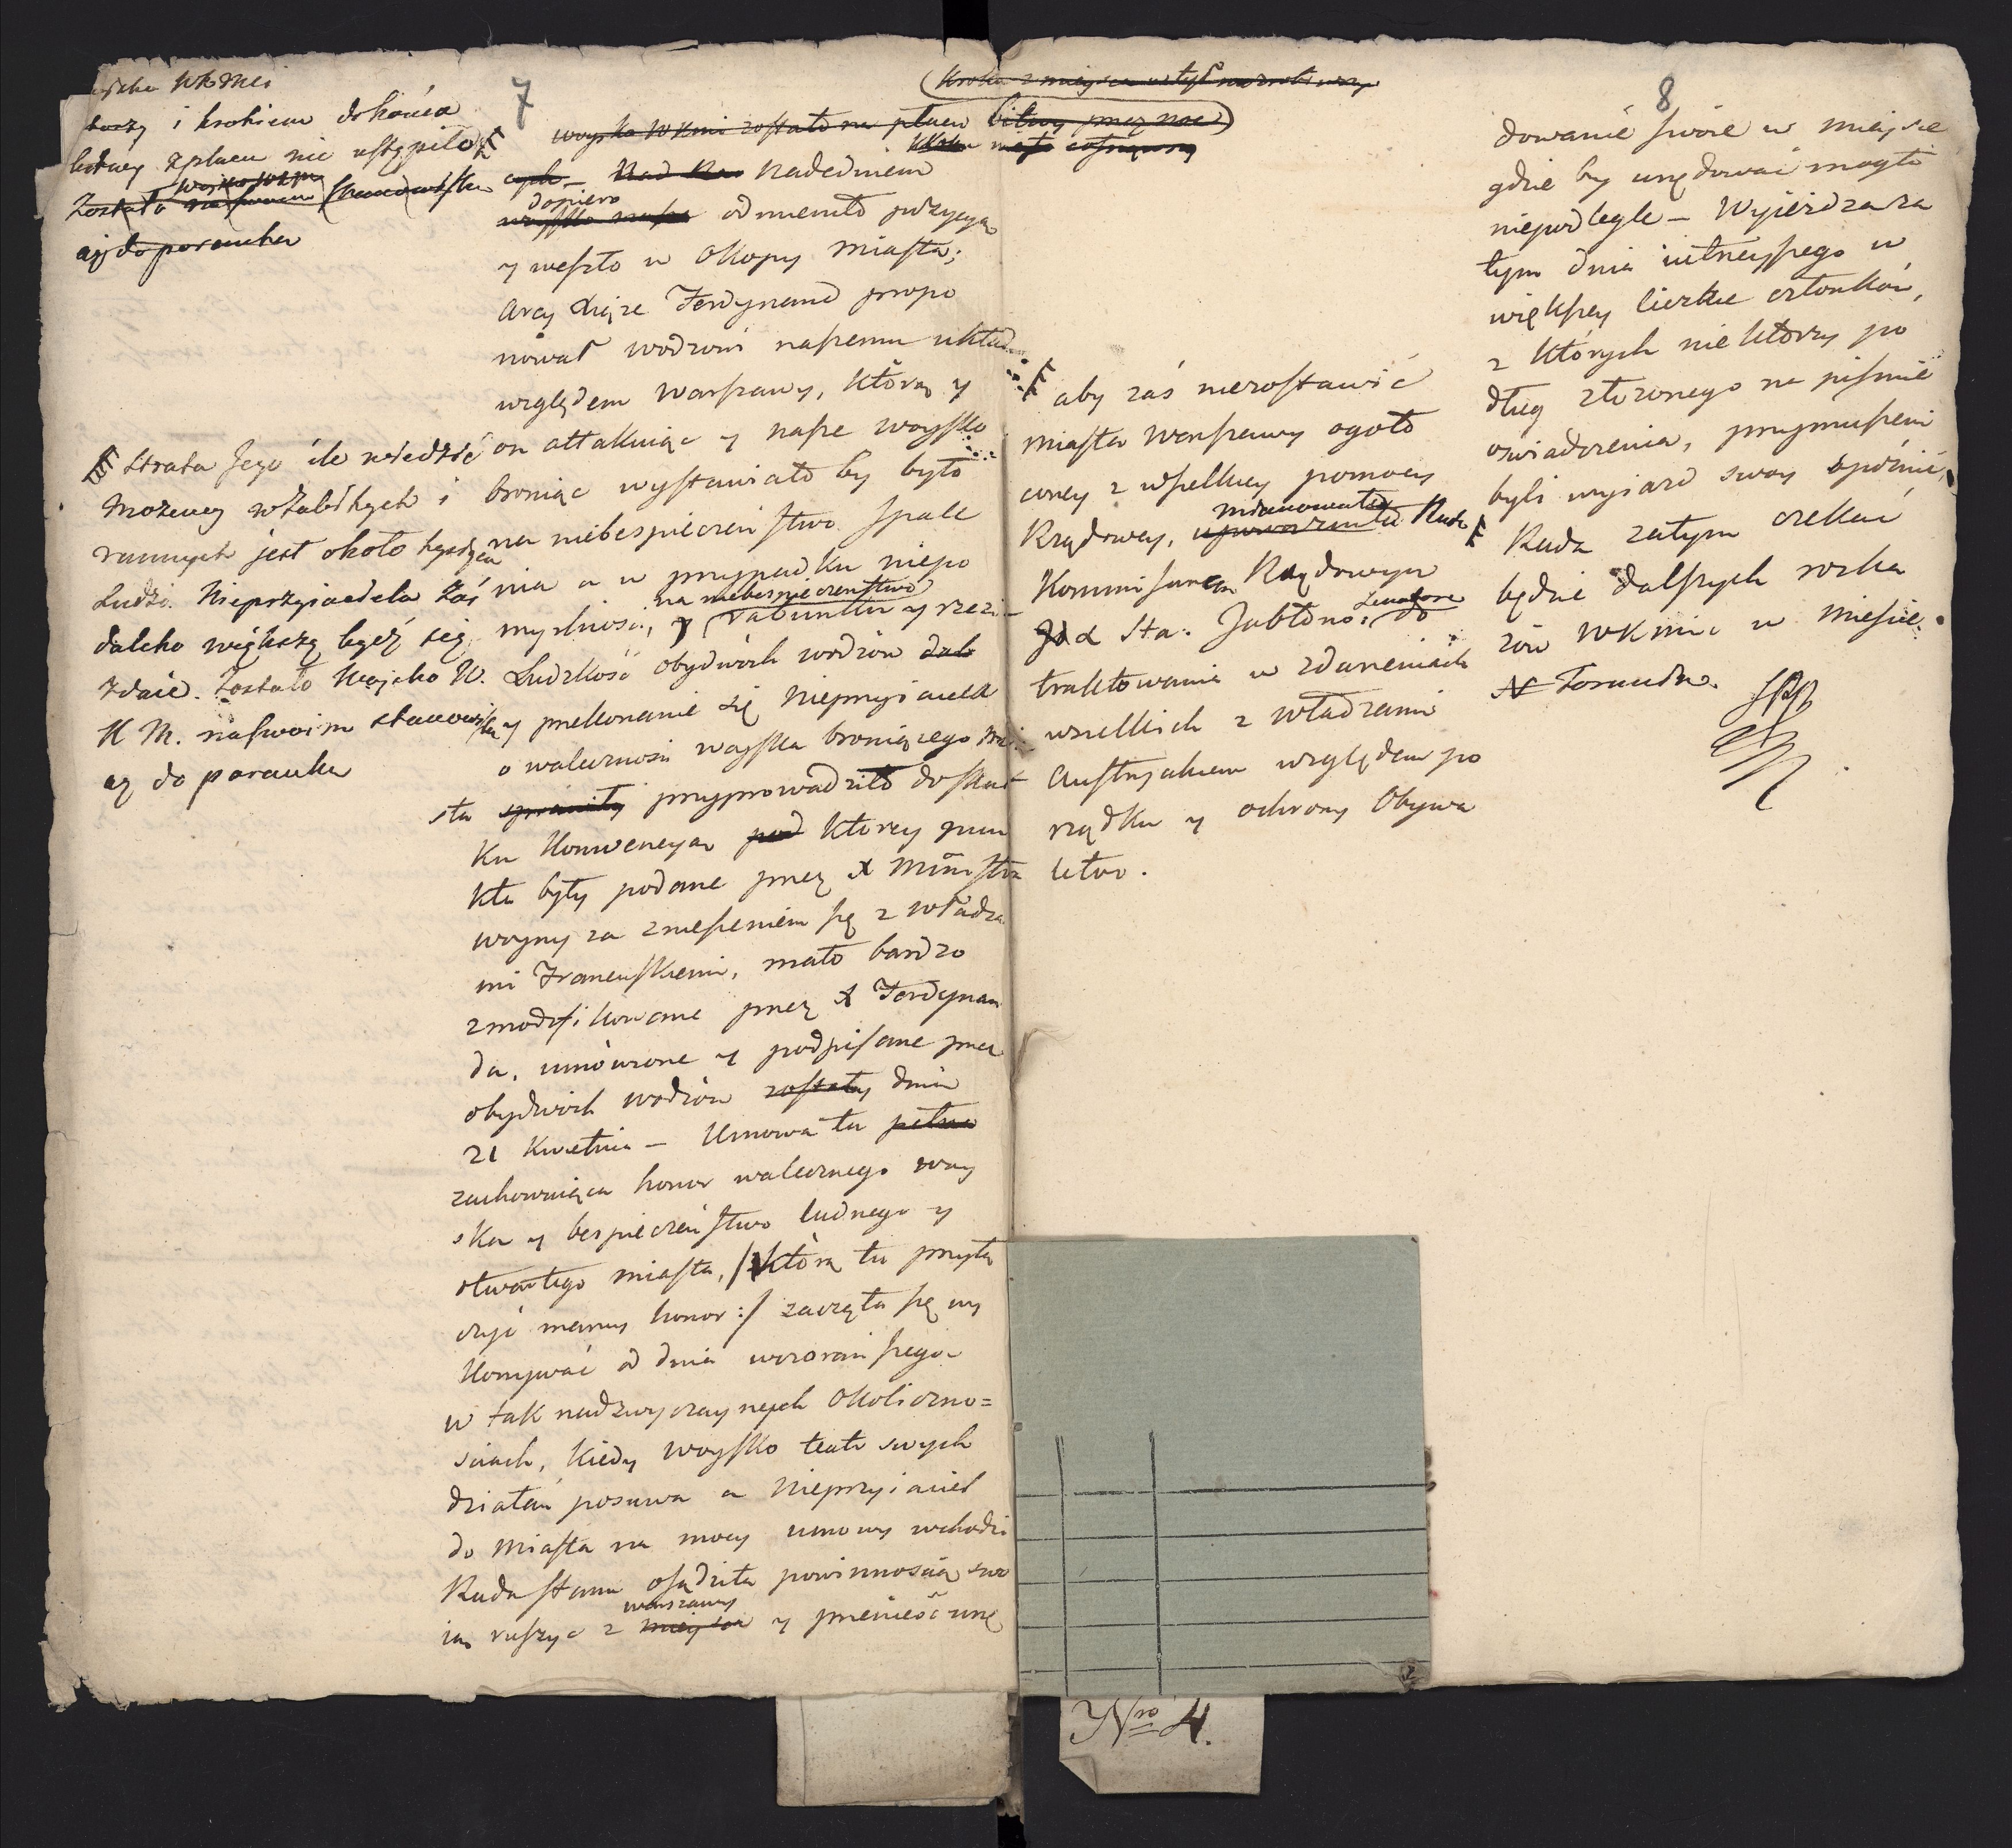 7
woysko WKMci
i krokiem do końca
bitwy z placu nie ustąpiło
Zostało woysko WKM na swoim stanowisku
aż do poranka
Strata Jego ile wiedzieć
możemy w zabitych i
rannych jest około tysiąca
Ludzi. Nieprzyiaciela zaś
daleko większą bydź się
zdaie. Zostało Woysko W.
K M. na swoim stanowisku
aż do poranka
kroku z mieysca w tył nie zrobiwszy
woysko WKmci zostało na placu bitwy przez noc
Nade dniem
dopiero
odmieniło pozycyą
y weszło w okopy miasta;
Arcy Xiąże Ferdynand propo
nował wodzowi naszemu układ
względem Warszawy, którą y
on attakuiąc y nasze woysko
broniąc wystawiało by było
na niebespieczeństwo spale
nia a w przypadku niepo
na niebespieczenstwo
myslności, y rabunku y rzezi
Ludzkość obydwóch wodzów
y przekonanie się Nieprzyiaciela
o waleczności woyska broniącego mia
sta sprawiły przyprowadziło do skut
ku Konwencya pod ktorey pun
kta były podane przez X Ministra
woyny za zniesieniem się z władza
mi Francuskiemi, mało bardzo
zmodyfikowane przez X Ferdynan
da, umówione y podpisane przez
obydwóch wodzów zostały dnia
21 Kwietnia – Umowa ta pełna
zachowuiąca honor walecznego woy
ska y bespieczeństwo ludnego y
otwartego miasta, /:którą tu przyłą
czyć mamy honor:/ zaczęła się wy
konywać od dnia wczorayszego
w tak nadzwyczaynych okoliczno=
sciach, kiedy woysko teatr swych
działań posuwa a Nieprzyiaciel
do miasta na mocy umowy wchodzi
Rada Stanu osądziła powinnością swo
warszawy
ią ruszyć z mieysca y przenieść urzę
aby zaś niezostawić
miasta Warszawy ogoło
coney z wszelkiey pomocy
mianowała
Rządowey, upoważniła Rada
Kommissarza Rządowym
Senatora
Sta: Jabłono: do
traktowania w zdarzeniach
wszelkich z władzami
Austryakiemi względem po
rządku y ochrony Obywa
telów.
8
dowanie swoie w mieysce
gdzie by urzędować mogło
niepodlegle – Wyieżdza za
tym dnia iutrzeyszego w
większey liczbie członków,
z których niektórzy po
dług złożonego na pismie
oswiadczenia, przymuszeni
byli wyiazd swoy opóźnić,
Rada zatym czekać
będzie dalszych rozka
zów WKmci w mieście
Toruniu.
Nro 4.